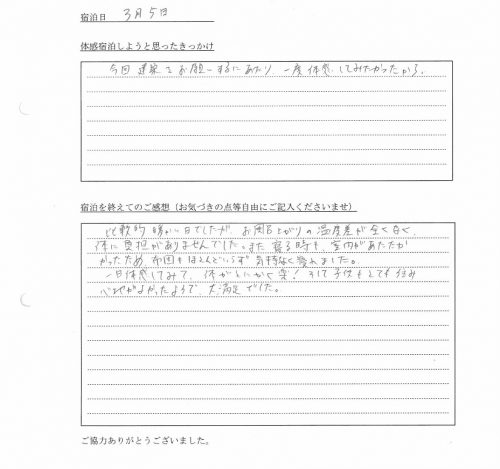 宿泊日 3月5日
体感宿泊しようと思ったきっかけ
今回 建築をお願いするにあたり、一度体感してみたかったから。
宿泊を終えてのご感想（お気づきの点等自由にご記入くださいませ）
比較的 暖かい日でしたが お風呂上がりの温度差が全く なく
体に負担がありませんでした。また 寝る時も、室内があたたか
かったため 布団もほとんどいらず 気持ちなく寝れました。
一日体感してみて、体がとにかく楽！そして子供もとても住み
心地がよかったようで、大満足でした。
ご協力ありがとうございました。